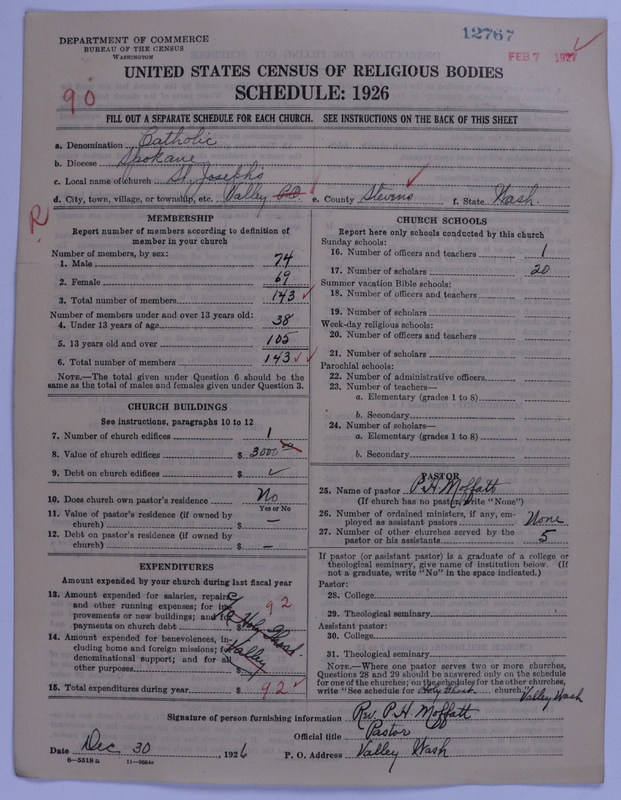 12767
FEB 7 1927
DEPARTMENT OF COMMERCE
BUREAU OF THE CENSUS
WASHINGTON
UNITED STATES CENSUS OF RELIGIOUS BODIES
SCHEDULE: 1926
90
FILL OUT A SEPARATE SCHEDULE FOR EACH CHURCH. SEE INSTRUCTIONS ON THE BACK OF THIS SHEET
a. Denomination Catholic
b. Diocese Spokane
c. Local name of church St. Joseph's
d. City, town, village, or township, etc. Valley P.O. e. County Stevens f. State Wash.
R
MEMBERSHIP
Report number of members according to definition of
member in your church
Number of members, by sex:
1. Male 74
2. Female 69
3. Total number of members 143
Number of members under and over 13 years old:
4. Under 13 years of age 38
5. 13 years old and over 105
6. Total number of members 143
NOTE.—The total given under Question 6 should be
same as the total of males and females given under Question 3.
CHURCH BUILDINGS
See instructions, paragraphs 10 to 12
7. Number of church edifices 1
8. Value of church edifices $ 3000 00
9. Debt on church edifices $
10. Does church own pastor's residence No
Yes or No
11. Value of pastor's residence (if owned by
church) $ —
12. Debt on pastor's residence (if owned by
church) $ —
EXPENDITURES
Amount expended by your church during last fiscal year
13. Amount expended for salaries, repairs,
and other running expenses; for im-
provements or new buildings; and for
payments on church debt $ 92
Holy Ghost
Valley
14. Amount expended for benevolences, in-
cluding home and foreign missions; for
denominational support; and for all
other purposes $
15. Total expenditures during year $ 92
CHURCH SCHOOLS
Report here only schools conducted by this church
Sunday schools:
16. Number of officers and teachers 1
17. Number of scholars 20
Summer vacation Bible schools:
18. Number of officers and teachers
19. Number of scholars
Week-day religious schools:
20. Number of officers and teachers
21. Number of scholars
Parochial schools:
22. Number of administrative officers
23. Number of teachers—
a. Elementary (grades 1 to 8)
b. Secondary
24. Number of scholars—
a. Elementary (grades 1 to 8)
b. Secondary
PASTOR
25. Name of pastor P. H. Moffatt
(If church has no pastor, write "None")
26. Number of ordained ministers, if any, em-
ployed as assistant pastors None
27. Number of other churches served by the
pastor or his assistants 5
If pastor (or assistant pastor) is a graduate of a college or
theological seminary, give name of institution below. (If
not a graduate, write "No" in the space indicated.)
Pastor:
28. College
29. Theological seminary
Assistant pastor:
30. College
31. Theological seminary
NOTE.—Where one pastor serves two or more churches,
Questions 28 and 29 should be answered only on the schedule
for one of the churches; on the schedules for the other churches,
write "See schedule for Holy Ghost church." Valley Wash
Signature of person furnishing information Rev. P. H. Moffatt
Official title Pastor
Date Dec. 30, 1926 P. O. Address Valley Wash
6—5518 a 11—9664